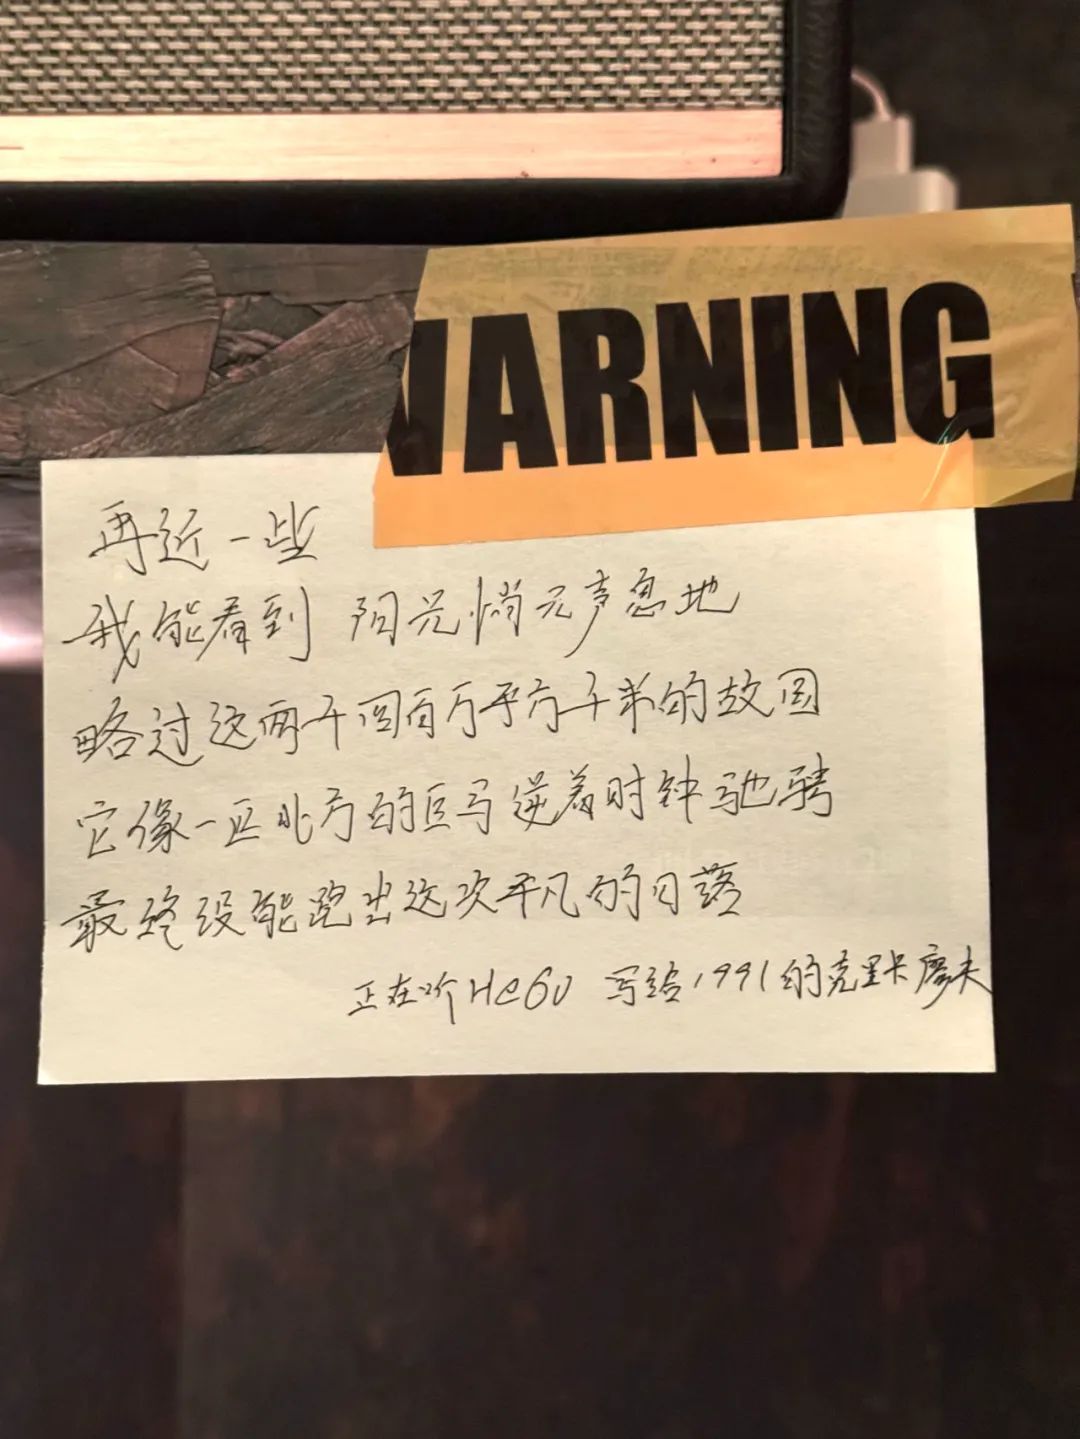 WARNING
再近一些
我能看到 阳光悄无声息地
略过这两千四百万平方千米的故国
它像一匹北方的巨马逆着时钟驰骋
最终没能跑出这次平凡的日落
正在听HeGU 写给1991的克里卡廖夫